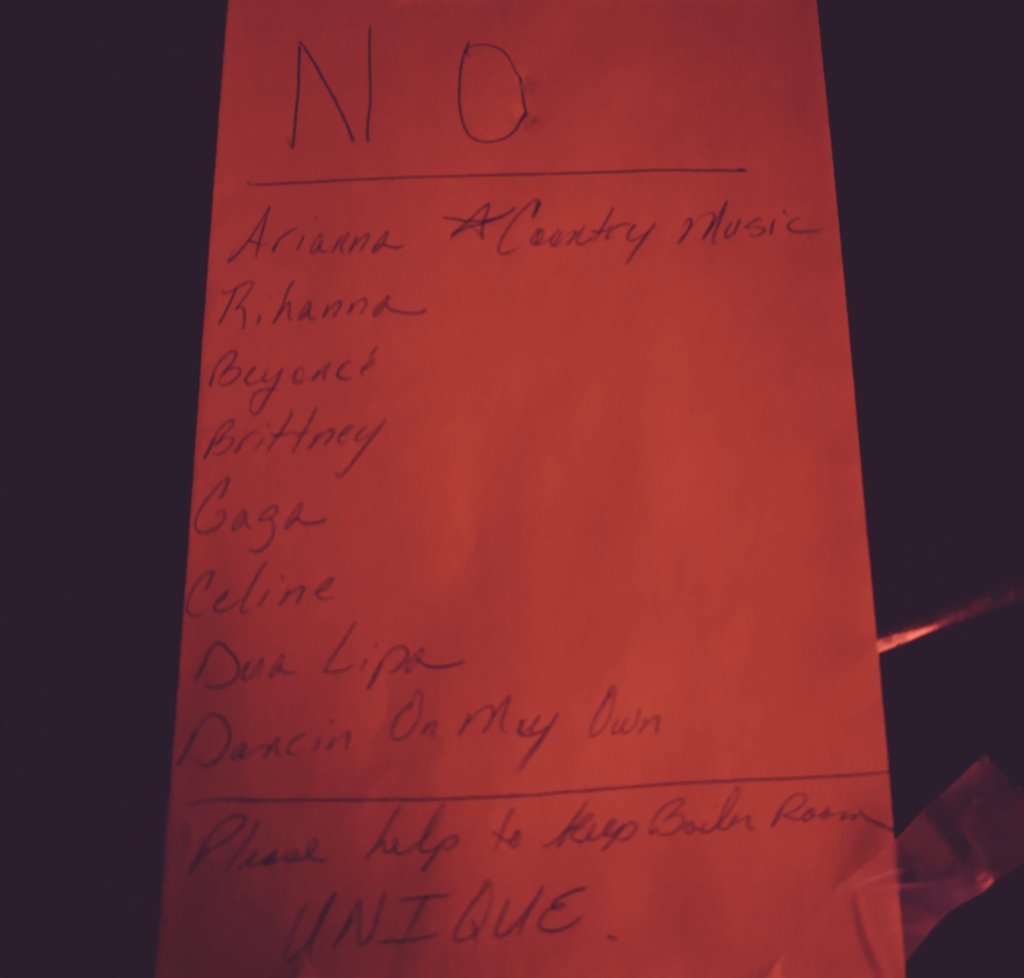 NO
Arianna ☆Country Music
Rihanna
Beyoncé
Brittney
Gaga
Celine
Dua Lipa
Dancin On My Own
Please help to keep Boiler Room
UNIQUE.